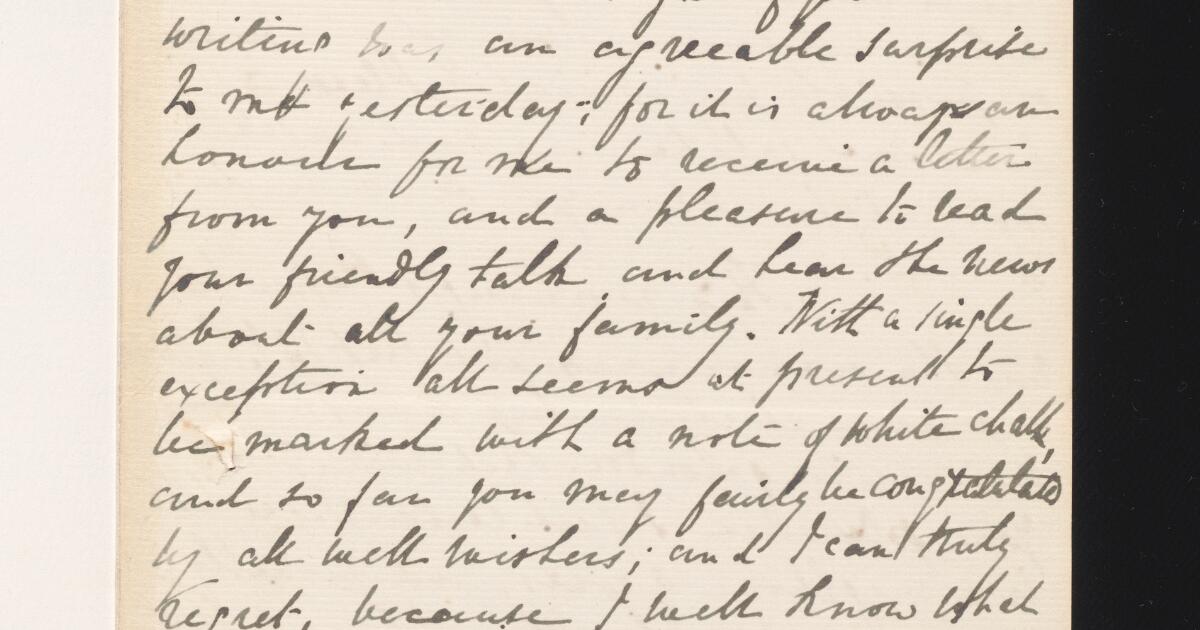 writing was an agreeable surprise
to me yesterday; for it is always an
honour for me to receive a letter
from you, and a pleasure to read
your friendly talk and hear the news
about all your family. With a single
exception all seems at present to
be marked with a note of white chalk,
and so far you may fairly be congratulated
by all well wishers; and I can truly
regret, because I well know what